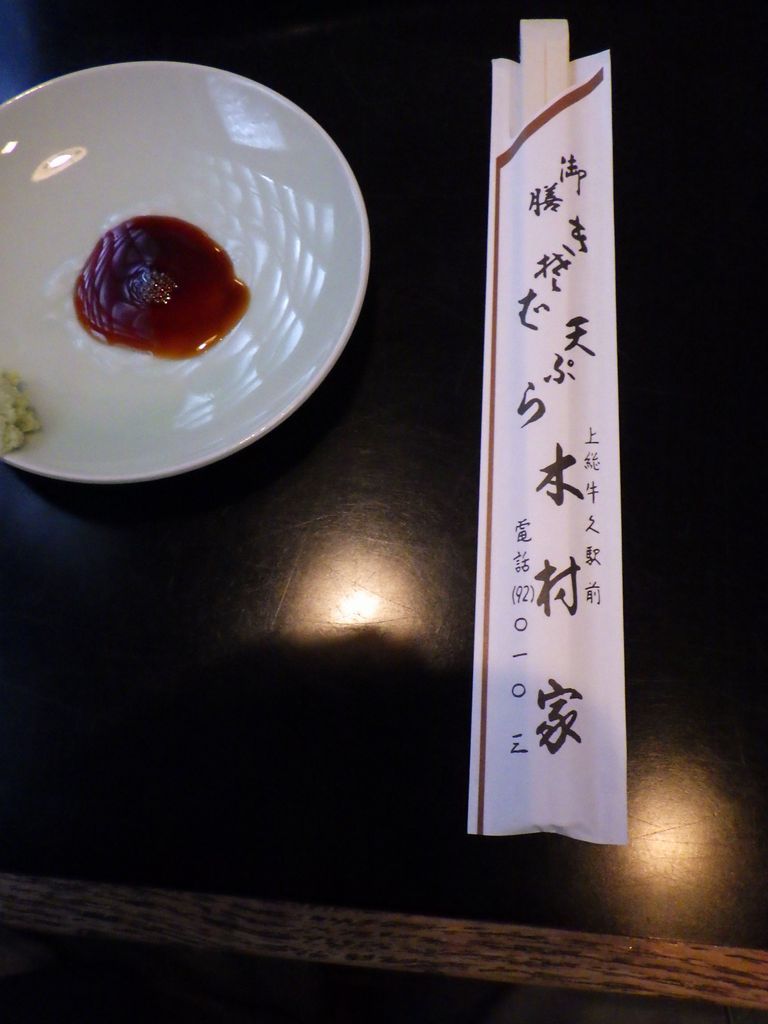 御膳
きそば
天ぷら
上総牛久駅前
木村家
電話(92)〇一〇三